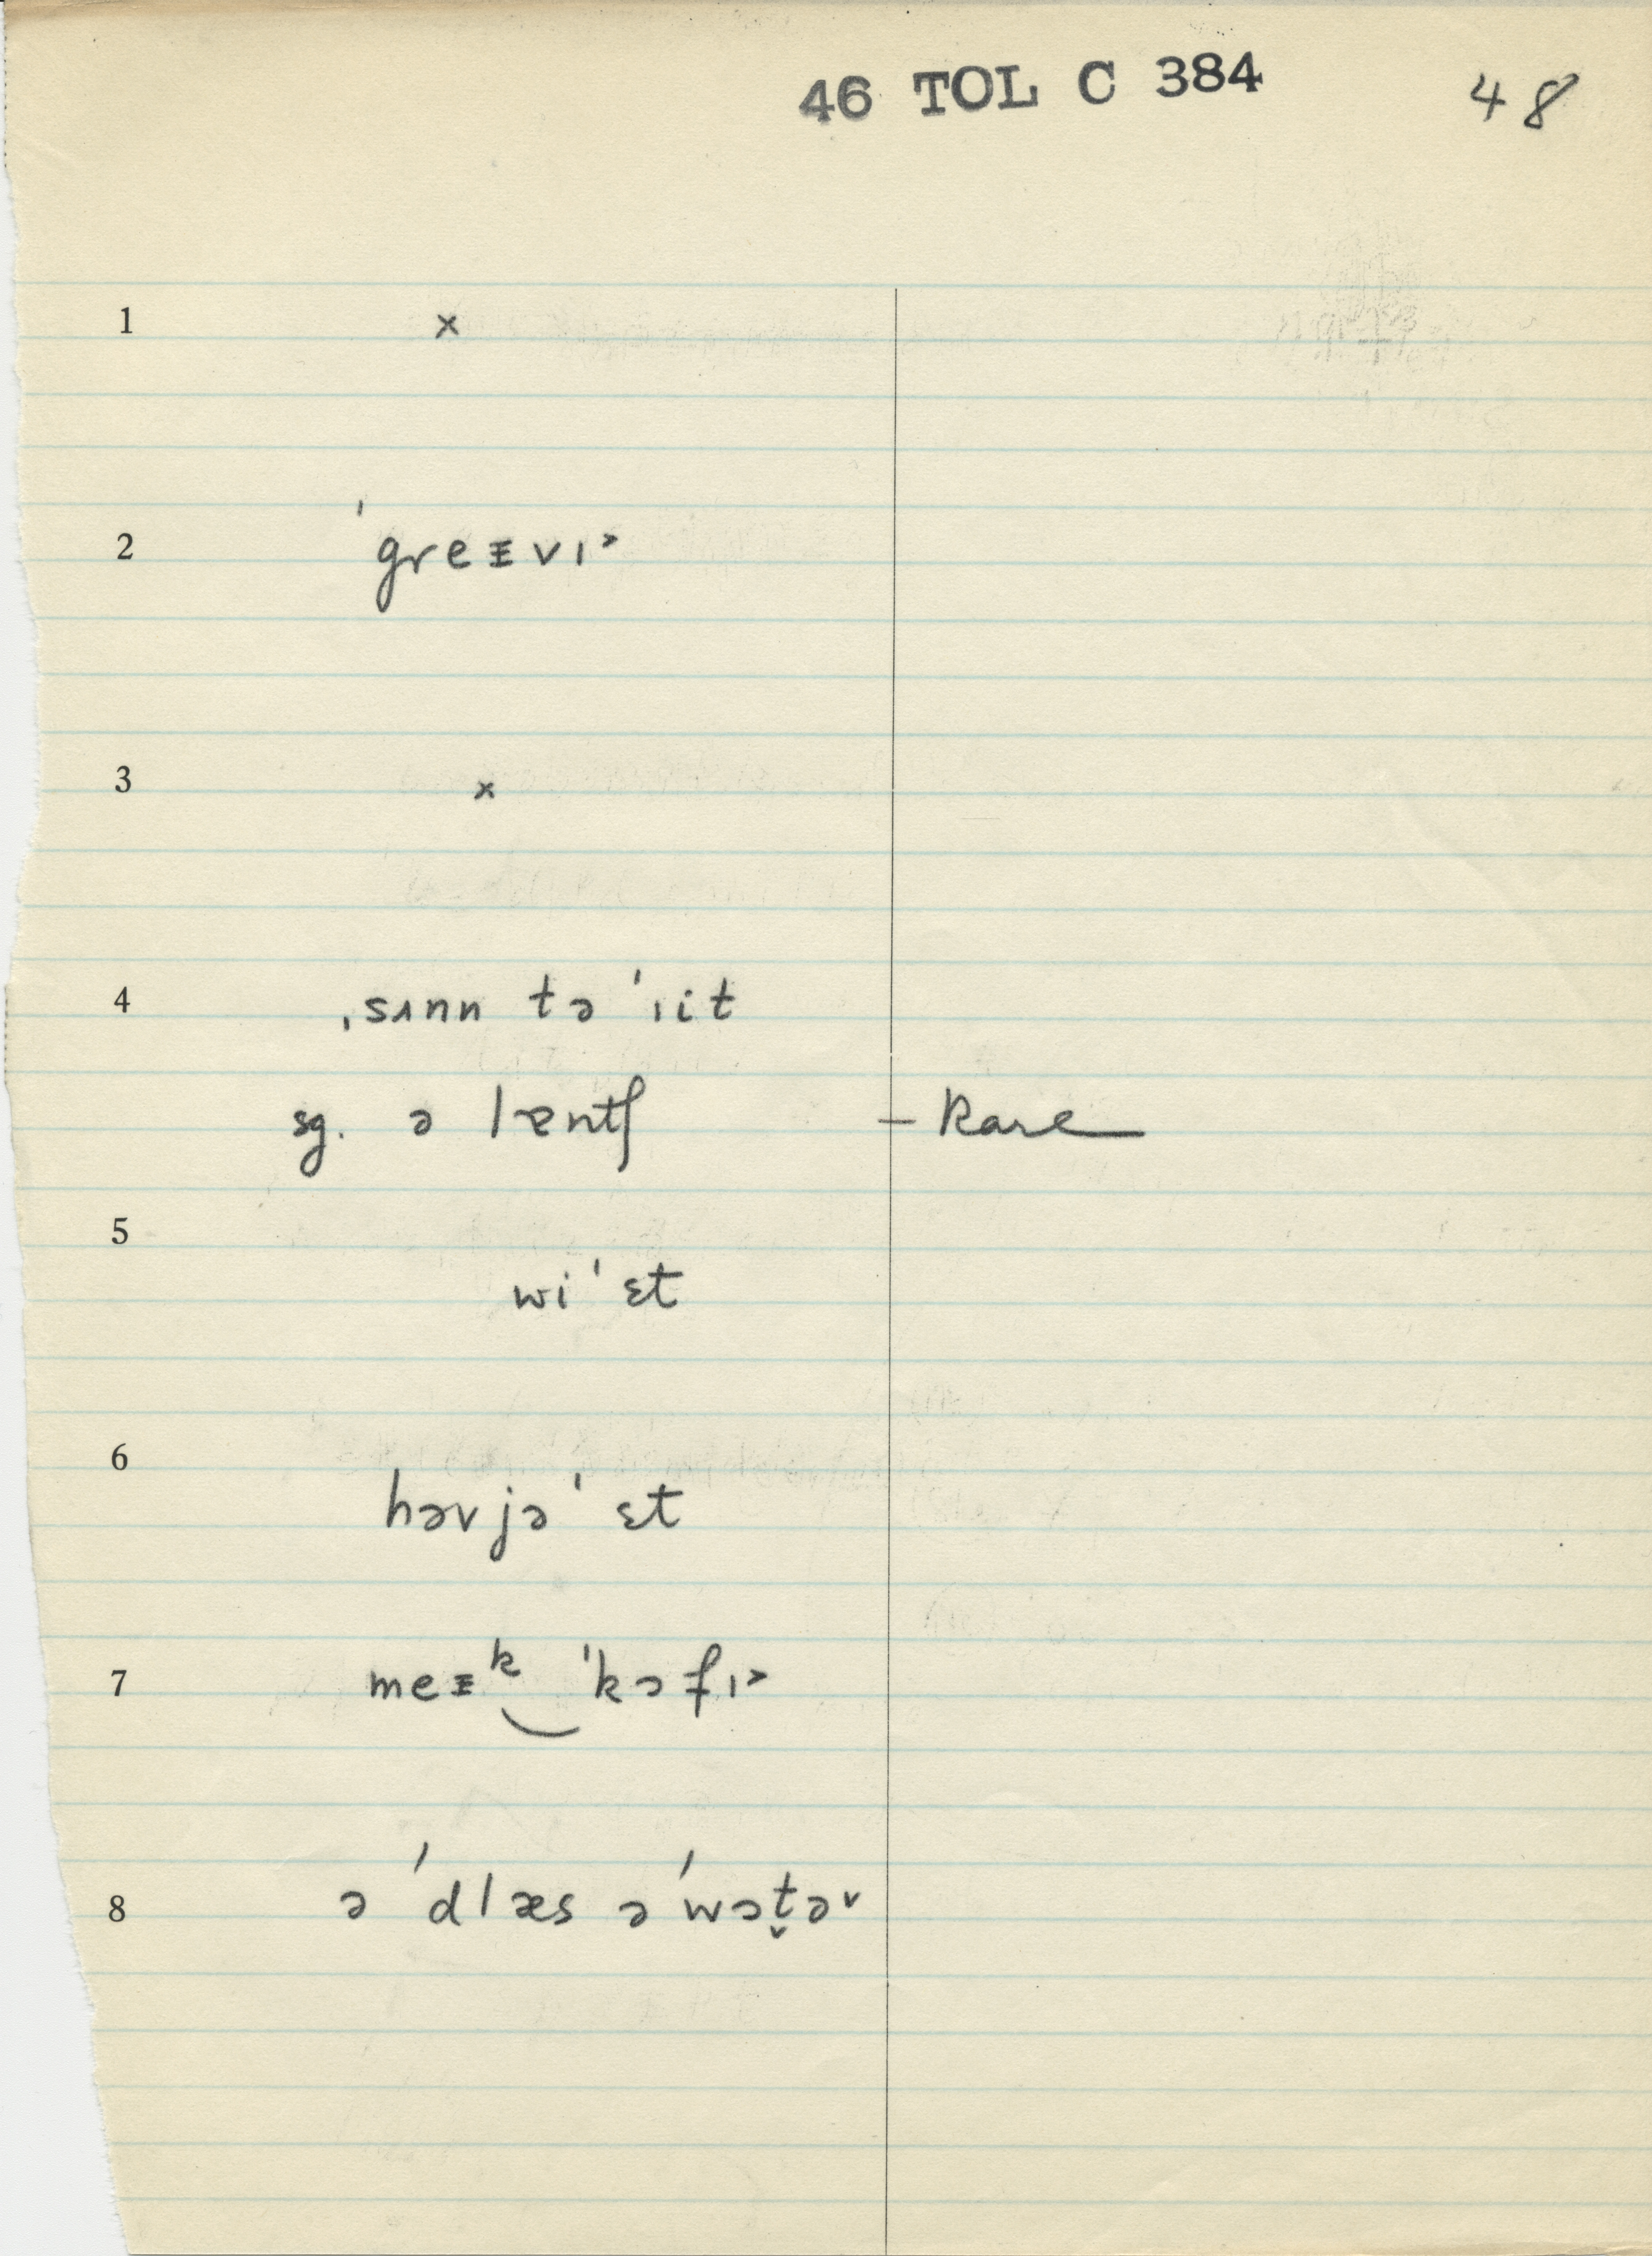 46 TOL C 384 48
1 ×
2 ˈgreᵻvɪ˃
3 ×
4 ˌsʌnn tə ˈɪit
sg. ə lɐntʃ – Rare
5
wiˈɛt
6
həvjəˈɛt
7 meᵻᵏ‿ˈkɔfɪ˃
8 ə ˈdlæs ə ˈwɔt̬ə˅